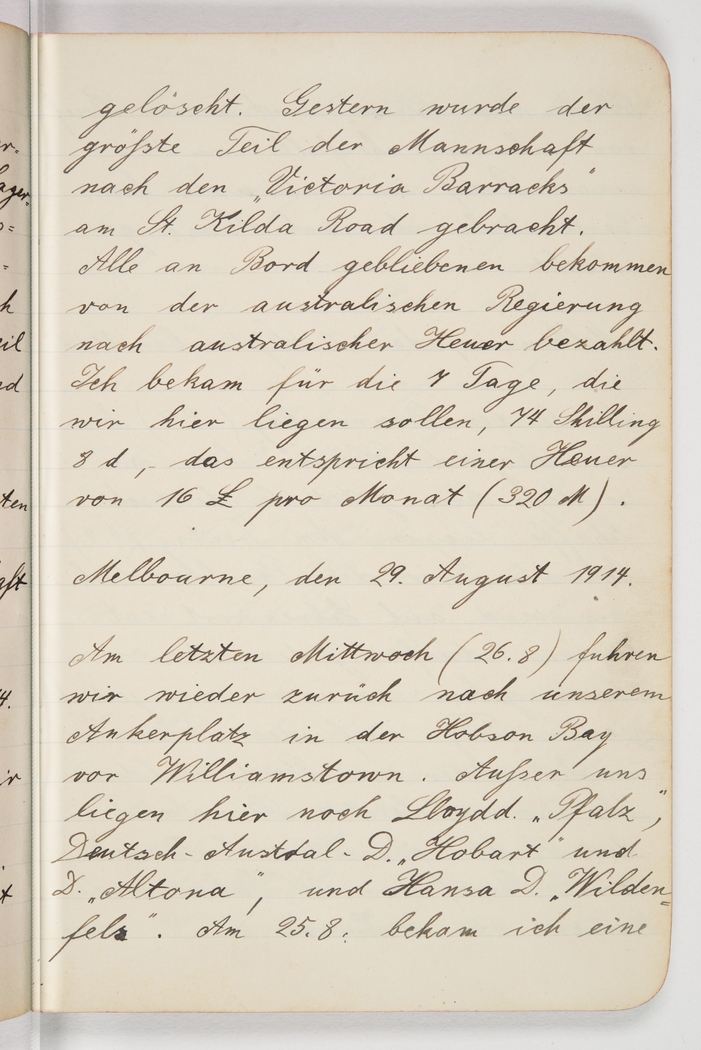 gelöscht. Gestern wurde der
größte Teil der Mannschaft
nach den „Victoria Barracks"
am St. Kilda Road gebracht.
Alle an Bord gebliebenen bekommen
von der australischen Regierung
nach australischer Heuer bezahlt.
Ich bekam für die 7 Tage, die
wir hier liegen sollen, 74 Shilling
8 d, das entspricht einer Heuer
von 16 £ pro Monat (320 M).
Melbourne, den 29. August 1914.
Am letzten Mittwoch (26.8) fuhren
wir wieder zurück nach unserem
Ankerplatz in der Hobson Bay
vor Williamstown. Außer uns
liegen hier noch Lloydd. „Pfalz",
Deutsch-Austral-D. „Hobart" und
D. „Altona", und Hansa D. „Wilden=
fels". Am 25.8. bekam ich eine